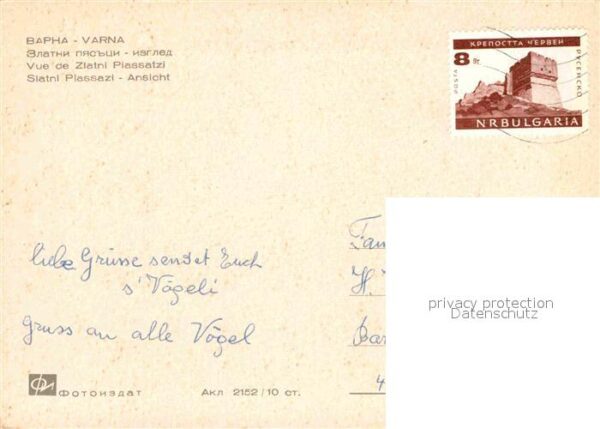 ВАРНА - VARNA
Златни пясъци - изглед
Vue de Zlatni Piassatzi
Slatni Plassazi - Ansicht
КРЕПОСТТА ЧЕРВЕН
8 ст.
ПОСТА
РУСЕНСКО
NRBULGARIA
liebe Grüsse sendet Euch
s' Vögeli
Gruss an alle Vögel
Fam
H.
4
privacy protection
Datenschutz
Фотоиздат
Акл 2152/10 ст.